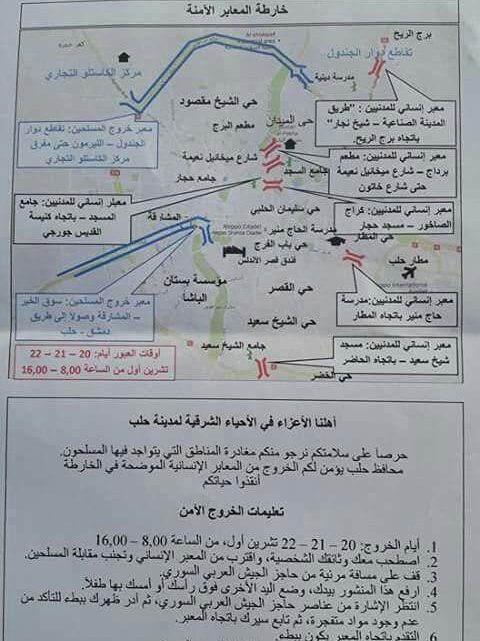 خارطة المعابر الآمنة
برج الريح
تقاطع دوار الجندول
مدرسة دينية
مركز الكاستلو التجاري
حي الشيخ مقصود
معبر إنساني للمدنيين: "طريق
المدينة الصناعية – شيخ نجار"
باتجاه برج الريح.
معبر خروج المسلحين: تقاطع دوار
الجندول – الليرمون حتى مفرق
مركز الكاستلو التجاري
حي الميدان
مطعم البرج
شارع ميخائيل نعيمة
جامع السجد
جامع حجار
معبر إنساني للمدنيين: مطعم
برداج – شارع ميخائيل نعيمة
حتى شارع خاتون
معبر إنساني للمدنيين: جامع
المسجد – باتجاه كنيسة
القديس جورجي
المشارقة
حي سليمان الحلبي
مدرسة الحاج منير
معبر إنساني للمدنيين: كراج
الصاخور – مسجد حجار
حي المطار
حي باب الفرج
فندق قصر الأندلس
مطار حلب
مؤسسة بستان
الباشا
حي القصر
معبر خروج المسلحين: سوق الخير
– المشارقة وصولاً إلى طريق
دمشق - حلب
معبر إنساني للمدنيين: مدرسة
حاج منير باتجاه المطار
حي الشيخ سعيد
جامع الشيخ سعيد
معبر إنساني للمدنيين: مسجد
شيخ سعيد – باتجاه الحاضر
أوقات العبور أيام: 20 – 21 – 22
تشرين أول من الساعة 8,00 – 16,00
حي الخضر
أهلنا الأعزاء في الأحياء الشرقية لمدينة حلب
حرصاً على سلامتكم نرجو منكم مغادرة المناطق التي يتواجد فيها المسلحون.
محافظ حلب يؤمن لكم الخروج من المعابر الإنسانية الموضحة في الخارطة
أنقذوا حياتكم
تعليمات الخروج الآمن
1. أيام الخروج: 20 – 21 – 22 تشرين أول، من الساعة 8,00 – 16,00
2. اصطحب معك وثائقك الشخصية، واقترب من المعبر الإنساني وتجنب مقابلة المسلحين.
3. قف على مسافة مرئية من حاجز الجيش العربي السوري.
4. ارفع هذا المنشور بيدك، وضع اليد الأخرى فوق رأسك أو أمسك بها طفلاً.
5. انتظر الإشارة من عناصر حاجز الجيش العربي السوري، ثم أدر ظهرك ببطء للتأكد من
عدم وجود مواد متفجرة، ثم تابع سيرك باتجاه المعبر.
التقدم باتجاه المعبر يكون ببطء.